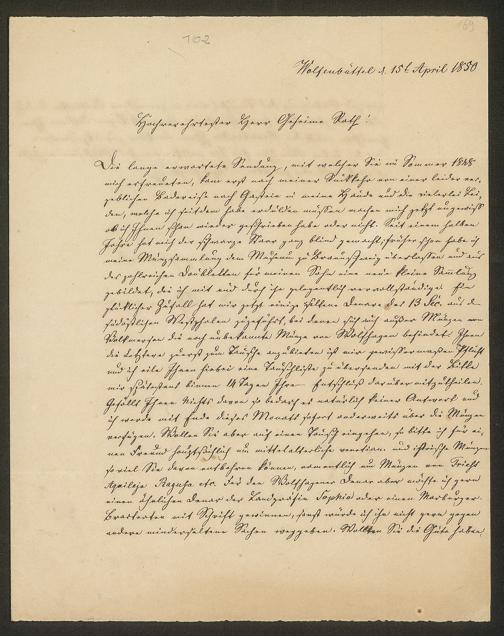 102
169
Wolfenbüttel d. 15t April 1850
Hochverehrtester Herr Geheime Rath!
Die lange erwartete Sendung, mit welcher Sie im Sommer 1848
mich erfreueten, kam erst nach meiner Rückkehr von einer leider ver-
geblichen Badereise nach Gastein in meine Hände und die vielerlei Lei-
den, welche ich seitdem habe erdulden müssen machen mich jetzt ungewiss
ob ich Ihnen schon wieder geschrieben habe oder nicht. Seit einem halben
Jahre hat mich der schwarze Staar ganz blind gemacht, früher schon habe ich
meine Münzsammlung dem Museum zu Braunschweig überlassen und aus
den zahlreichen Doubletten für meinen Sohn eine neue kleine Sammlung
gebildet, die ich mit und durch ihn gelegentlich vervollständige. Ein
glücklicher Zufall hat mir jetzt einige seltene Denare des 13 Sec. aus dem
südöstlichen Westphalen zugeführt, bei denen sich auch außer Münzen von
Volkmarsen die noch unbekannte Münze von Wolfhagen befindet. Ihnen
die Letztere zuerst zum Tausche anzubieten ist mir gewissermaßen Pflicht
und ich eile Ihnen hiebei eine Tauschliste zu übersenden mit der Bitte
mir spätestens binnen 14 Tagen Ihren Entschluß darüber mitzutheilen.
Gefällt Ihnen Nichts davon so bedarf es natürlich keiner Antwort und
ich werde mit Ende dieses Monats sofort anderweits über die Münzen
verfügen. Wollen Sie aber auf einen Tausch eingehen, so bitte ich für ei-
nen Freund hauptsächlich um mittelalterliche und istrische Münzen
so viel Sie deren entbehren können, namentlich um Münzen von Triest
Aquileja Ragusa etc. Für den Wolfhagener Denar aber möchte ich gern
einen ähnlichen Denar der Landgräfin Sophia oder einen Marburger
Bracteaten mit Schrift gewinnen, sonst würde ich ihn nicht gern gegen
andere minderseltene Sachen weggeben. Wollten Sie die Güte haben